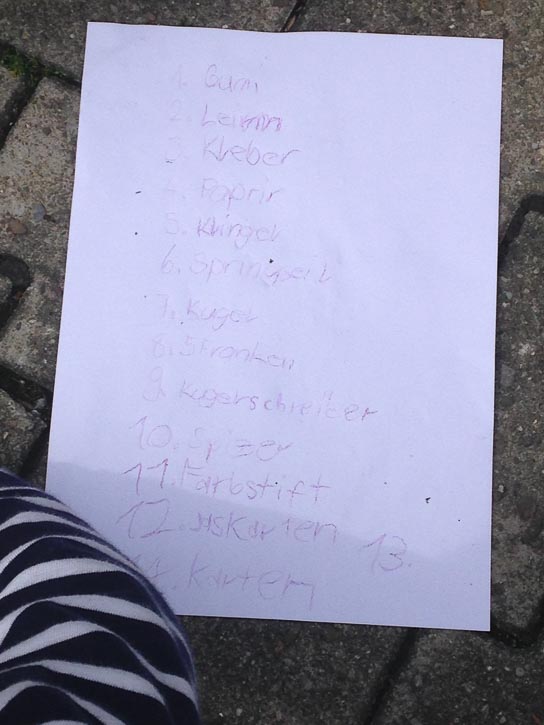 1. Gumi
2. Leimm
3. Kleber
4. Paprir
5. Klingel
6. Springseil
7. Kugel
8. 5 Franken
9. Kugerschreiber
10. Spizer
11. Farbstift
12. Jaskarten 13.
14. Karten